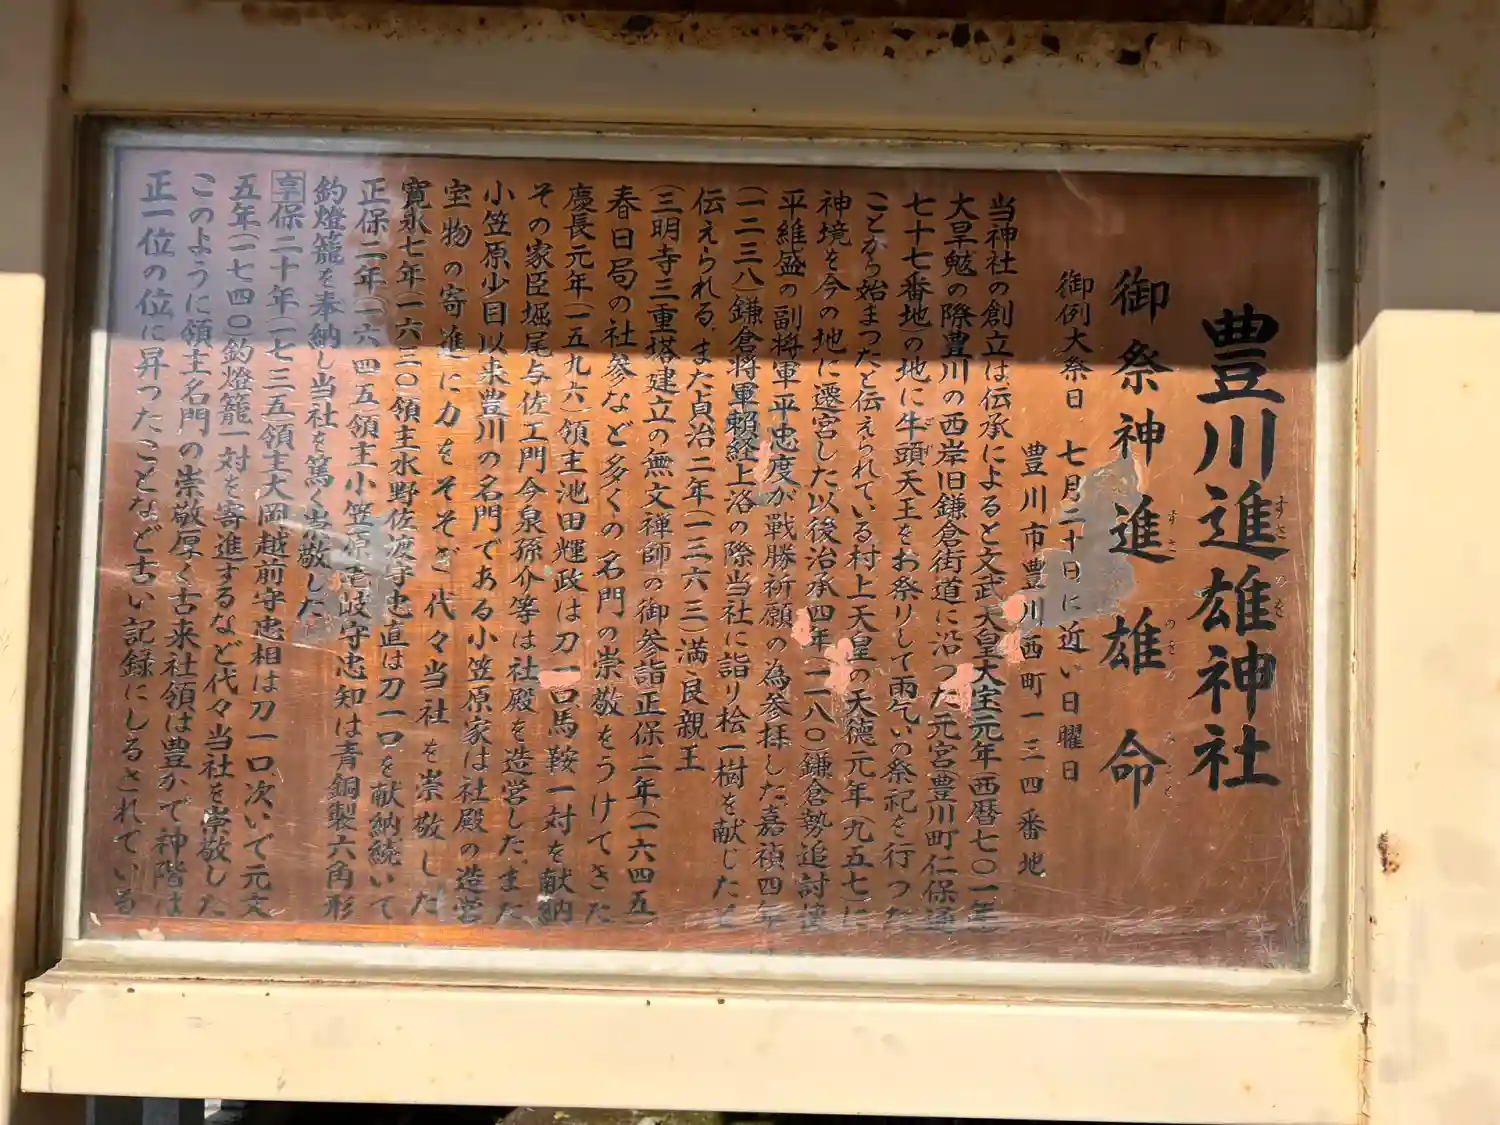 豊川進雄神社
すさ のを
御祭神 進雄命
すさ のを みこと
御例大祭日 七月二十日に近い日曜日
豊川市豊川西町一三四番地
当神社の創立は伝承によると文武天皇大宝元年西暦七〇一年
大旱魃の際豊川の西岸旧鎌倉街道に沿つた元宮豊川町仁保通
七十七番地の地に牛頭天王をお祭りして雨乞いの祭祀を行つた
ことから始まつたと伝えられている村上天皇の天徳元年(九五七)に
神境を今の地に遷宮した以後治承四年(一一八〇)鎌倉勢追討
平維盛の副将軍平忠度が戦勝祈願の為参拝した嘉禎四年
(一二三八)鎌倉将軍頼経上洛の際当社に詣り桧一樹を献したと
伝えられる、また貞治二年(一三六三)満良親王
(三明寺三重塔建立の無文禅師の御参詣正保二年(一六四五
春日局の社参など多くの名門の崇敬をうけてきた
慶長元年(一五九六)領主池田輝政は刀一口馬鞍一対を献納
その家臣堀尾与佐工門今泉孫介等は社殿を造営した、また
小笠原少目以来豊川の名門である小笠原家は社殿の造営
宝物の寄進に力をそそぎ代々当社を崇敬した
寛永七年一六三〇領主水野佐渡守忠直は刀一口を献納続いて
正保二年(一六四五)領主小笠原壱岐守忠知は青銅製六角形
釣燈籠を奉納し当社を篤く崇敬した
享保二十年(一七三五)領主大岡越前守忠相は刀一口次いで元文
五年(一七四〇)釣燈籠一対を寄進するなど代々当社を崇敬した
このように領主名門の崇敬厚く古来社領は豊かで神階は
正一位の位に昇つたことなど古い記録にしるされている